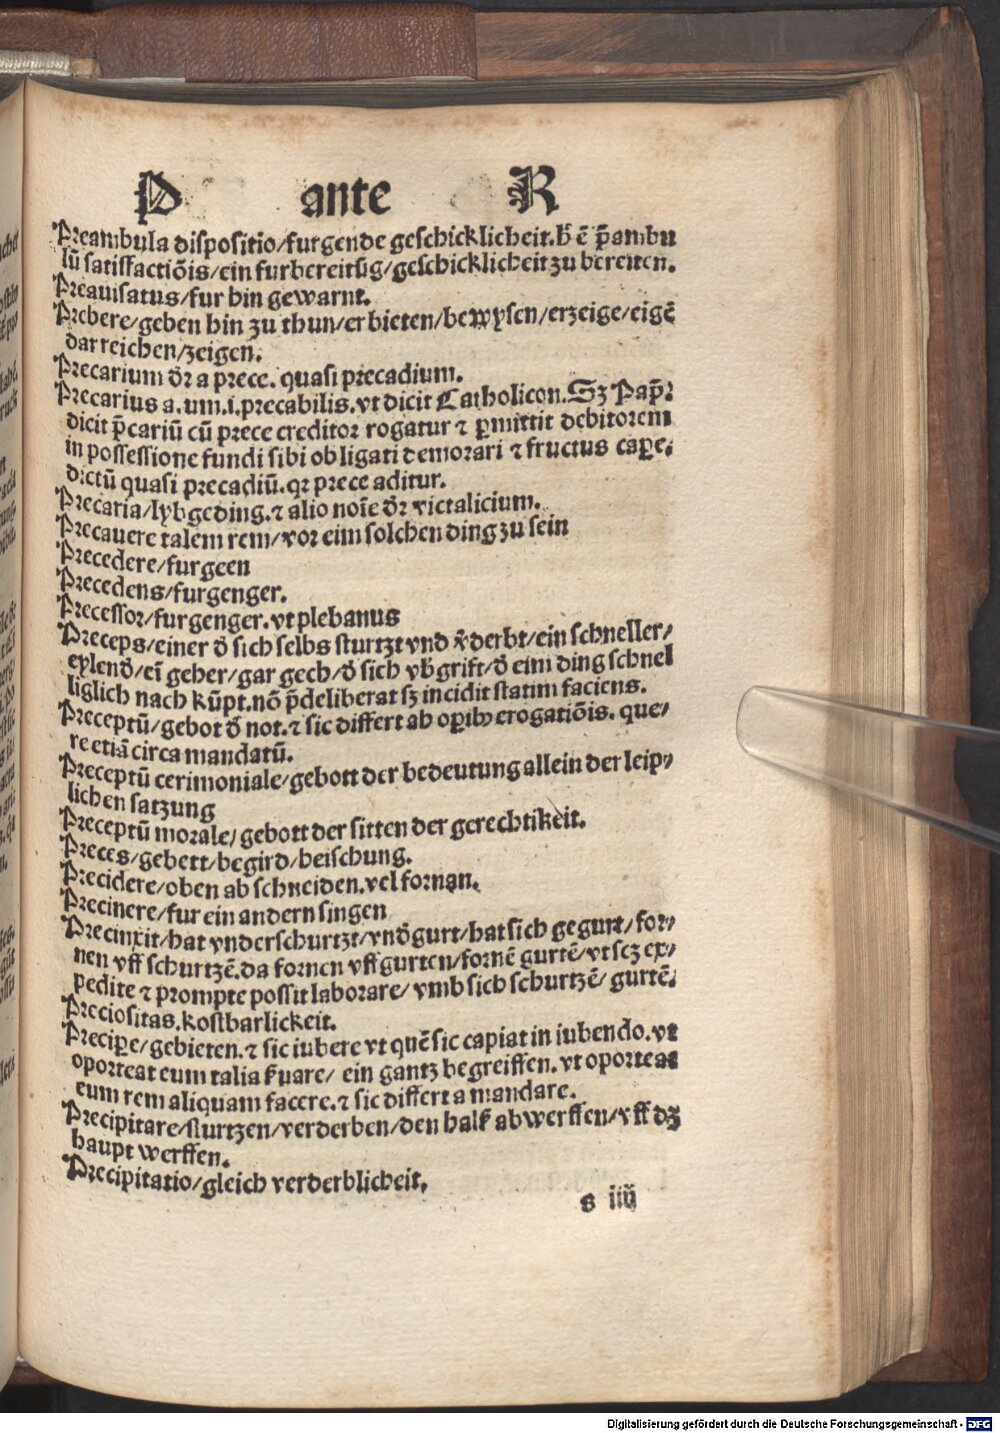 P ante R
Preambula dispositio/furgende geschicklicheit.h̄ ē p̄ambu
lū satiffactiōis/ein furbereitūg/geschicklicheit zu bereiten.
Preauisatus/fur hin gewarnt.
Prebere/geben hin zu thun/erbieten/bewysen/erzeige/eigē
darreichen/zeigen.
Precarium dr̄ a prece. quasi precadium.
Precarius a.um.i.precabilis.vt dicit Catholicon.Sz Pap̄.
dicit p̄cariū cū prece creditor rogatur ⁊ ꝑmittit debitorem
in possessione fundi sibi obligati demorari ⁊ fructus caꝑe.
dictū quasi precadiū.qꝛ prece aditur.
Precaria/lybgeding.⁊ alio noīe dr̄ victalicium.
Precauere talem rem/vor eim solchen ding zu sein
Precedere/furgeen
Precedens/furgenger.
Precessor/furgenger.vt plebanus
Preceps/einer d̄ sich selbs sturtzt vnd v̄derbt/ein schneller/
eylend̄/eī geher/gar gech/d̄ sich vb̄grift/d̄ eim ding schnel
liglich nach kūpt.nō p̄deliberat sz incidit statim faciens.
Preceptū/gebot d̄ not.⁊ sic differt ab oꝑibꝰ erogatiōis. que⸗
re etiā circa mandatū.
Preceptū cerimoniale/gebott der bedeutung allein der leip⸗
lichen satzung
Preceptū morale/gebott der sitten der gerechtikeit.
Preces/gebett/begird/heischung.
Precidere/oben ab schneiden.vel fornan.
Precinere/fur ein andern singen
Precinxit/hat vnderschurtzt/vnd̄gurt/hat sich gegurt/for⸗
nen vff schurtzē.da fornen vff gurten/fornē gurtē/vt scz ex⸗
pedite ⁊ prompte possit laborare/vmb sich schurtzē/gurtē.
Preciositas.kostbarlickeit.
Preciꝑe/gebieten.⁊ sic iubere vt quē sic capiat in iubendo.vt
oporteat eum talia ẜuare/ ein gantz begreiffen.vt oporteat
eum rem aliquam facere.⁊ sic differt a mandare.
Precipitare/sturtzen/verderben/den halß abwerffen/vff dz
haupt werffen.
Precipitatio/gleich verderblicheit.
s iiij
Digitalisierung gefördert durch die Deutsche Forschungsgemeinschaft - DFG